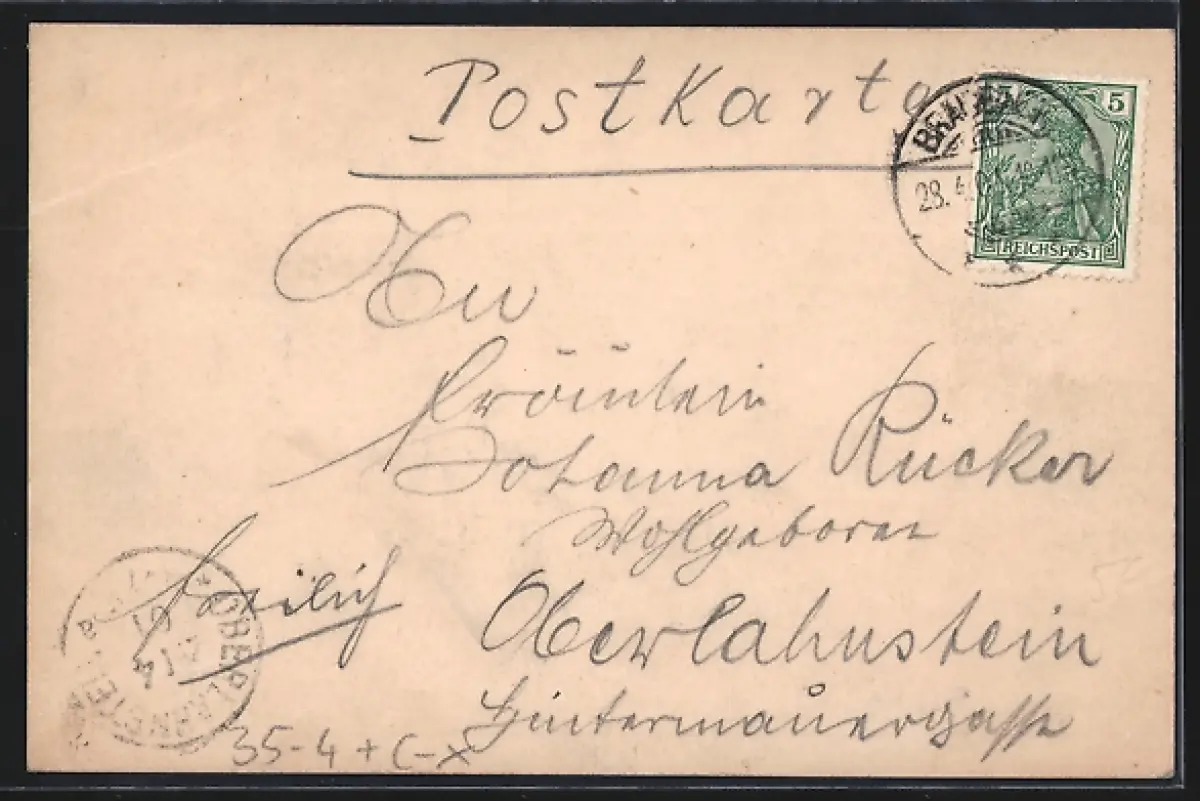 Postkarte
5
REICHSPOST
28. 4.
An
Fräulein
Johanna Rücker
Wohlgeboren
Oberlahnstein
Hintermauergasse
OBERLAHNSTEIN
35-4+C-x